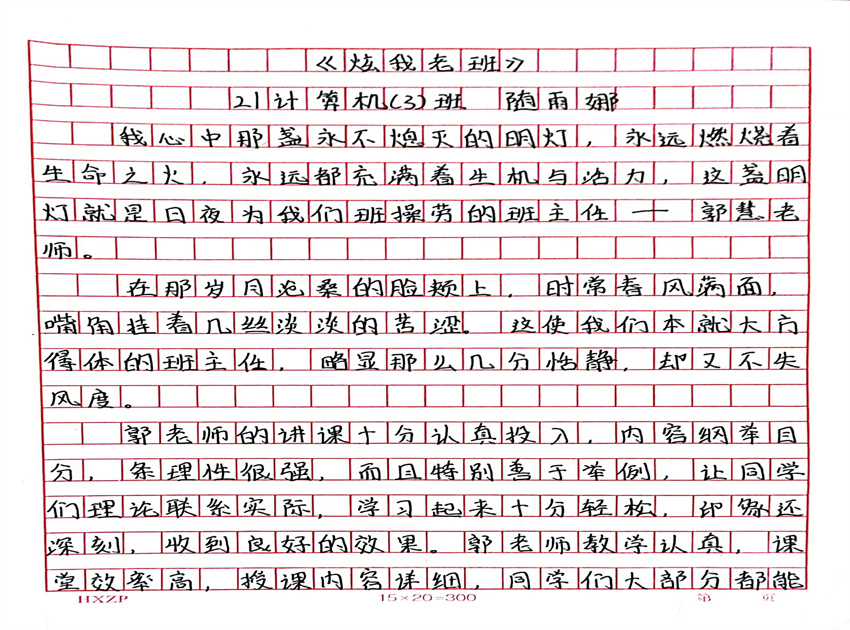 《炫我老班》
21计算机(3)班 随雨娜
我心中那盏永不熄灭的明灯，永远燃烧着
生命之火，永远都充满着生机与活力，这盏明
灯就是日夜为我们班操劳的班主任——郭慧老
师。
在那岁月沧桑的脸颊上，时常春风满面，
嘴角挂着几丝淡淡的苦涩。这使我们本就大方
得体的班主任，略显那么几分恬静，却又不失
风度。
郭老师的讲课十分认真投入，内容纲举目
分，条理性很强，而且特别善于举例，让同学
们理论联系实际，学习起来十分轻松，印象还
深刻，收到良好的效果。郭老师教学认真，课
堂效率高，授课内容详细，同学们大部分都能
HXZP 15×20=300 第 页